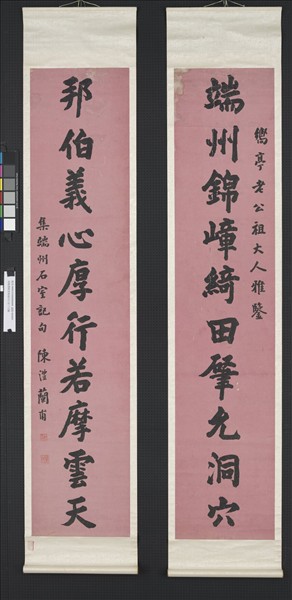 端州錦嶂綺田肇允洞穴
亭老公祖大人雅鑒
邦伯義心厚行若摩雲天
集端州石室記句 陳澧蘭甫